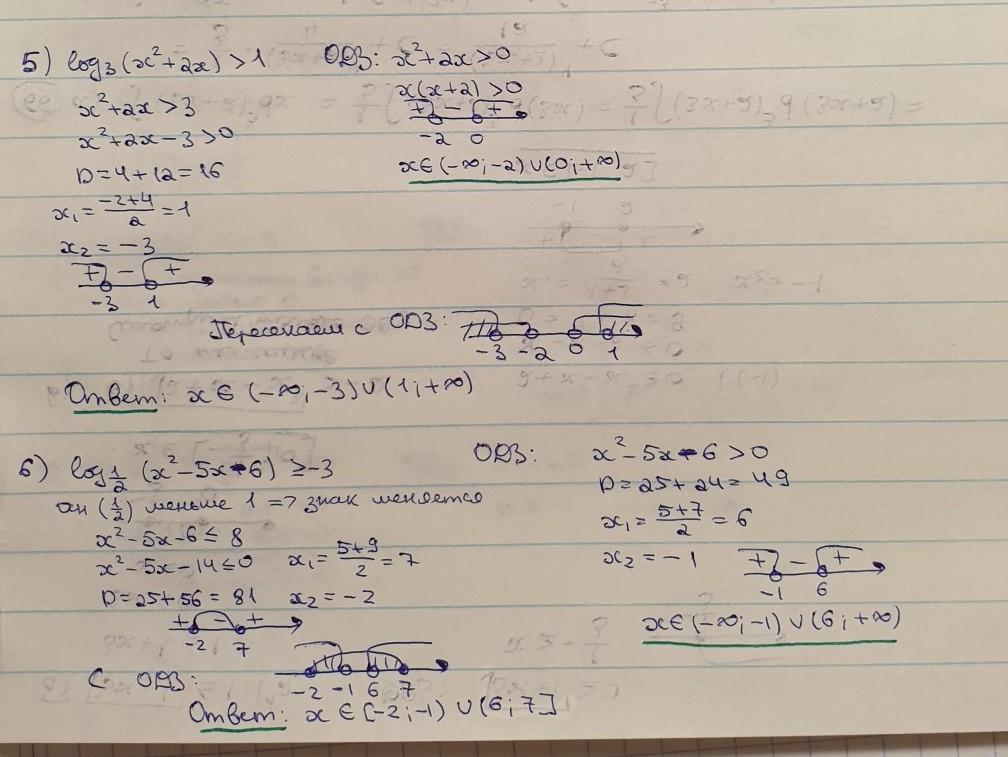 5) log₃(x²+2x) > 1 ОДЗ: x²+2x>0
x²+2x>3 x(x+2)>0
+ − +
x²+2x−3>0 -2 0
D=4+12=16 x∈(-∞;-2)∪(0;+∞)
x₁=(-2+4)/2=1
x₂=-3
+ − +
-3 1
Пересекаем с ОДЗ: -3 -2 0 1
Ответ: x∈(-∞;-3)∪(1;+∞)
6) log½(x²-5x-6) ≥ -3 ОДЗ: x²-5x-6>0
(½) меньше 1 => знак меняется D=25+24=49
x²-5x-6≤8 x₁=(5+7)/2=6
x²-5x-14≤0 x₁=(5+9)/2=7 x₂=-1
+ − +
-1 6
D=25+56=81 x₂=-2 x∈(-∞;-1)∪(6;+∞)
+ - +
-2 7
С ОДЗ: -2 -1 6 7
Ответ: x∈[-2;-1)∪(6;7]